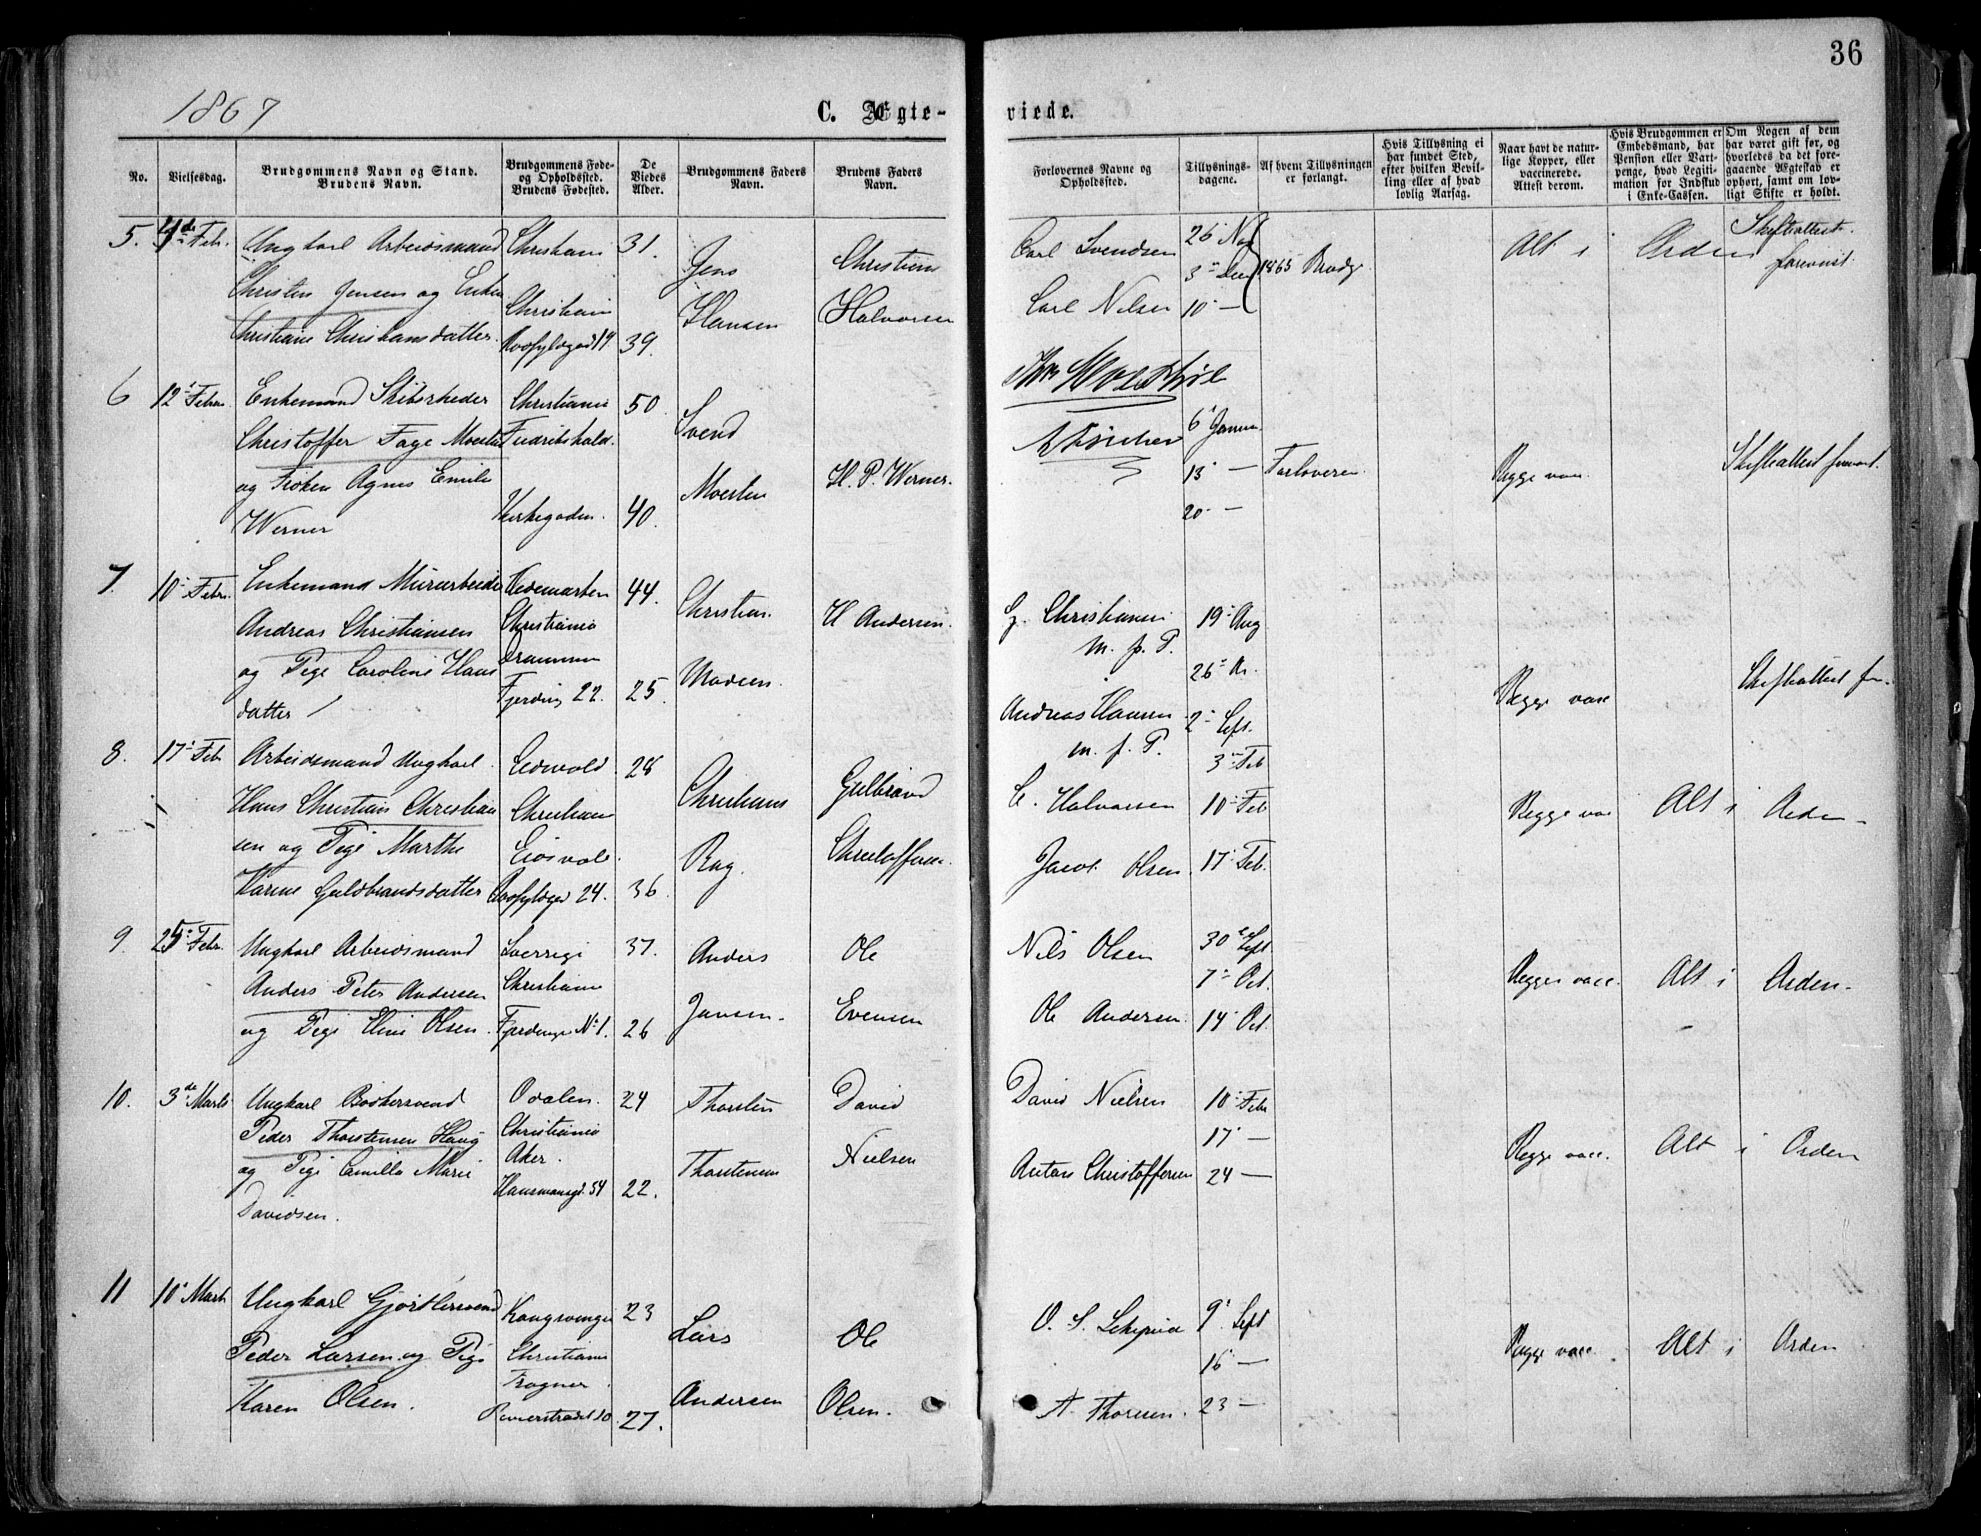 36
1867
C. Ægte-
viede.
No.
Vielsesdag.
Brudgommens Navn og Stand.
Brudens Navn.
Brudgommens Føde-
og Opholdssted.
Brudens Fødested.
De
Viedes
Alder.
Brudgommens Faders
Navn.
Brudens Faders
Navn.
Forlovernes Navne og
Opholdssted.
Tillysnings-
dagene.
Af hvem Tillysningen
er forlangt.
Hvis Tillysning ei
har fundet Sted,
efter hvilken Bevil-
ling eller af hvad
lovlig Aarsag.
Naar havt de natur-
lige Kopper, eller
vaccinerede.
Attest derom.
Hvis Brudgommen er
Embedsmand, har
Pension eller Vart-
penge, hvad Legiti-
mation for Indskud
i Enke-Cassen.
Om Nogen af dem
har været gift før, og
hvorledes da det fore-
gaaende Ægteskab er
ophørt, samt om lov-
ligt Skifte er holdt.
5. Febr. Ungkarl Arbeidsmand Christiania 31. Jens Christian
Christen Jensen og Enken Christiania Hansen Halvorsen
Christiane Christiansdatter. 19 39.
Carl Svendsen 26 Nov 1865 Brudg. Alt i Orden Skifteattest
Carl Nilsen 3 Dec 10 — forevist.
6 12 Febr. Enkemand Skibsrheder Christiania 50. Svend
Christoffer Fage Moestue Fredrikshald.
og Frøken Agnes Emilie Moestue H. P. Werner.
Werner Kirkegaden. 40.
6 Januar
13 — Forloveren Begge vacc. Skifteattest forevist.
20 —
7. 10 Febr. Enkemand Murarbeider Hedemarken 44. Christian H Andersen.
Andreas Christiansen Christiania
og Pige Caroline Hans Drammen Madsen.
datter Fjerding 22. 25.
Christiansen 19 Aug
m. p. P. 26
Andreas Hansen 2 Sept. Begge vacc Skifteattest
m. p. P.
8. 17 Feb Arbeidsmand Ungkarl Eidsvold 28 Christians Gulbrand
Hans Christian Christian Christiania
sen og Pige Marthe Eidsvold. Christoffersen.
Karine Guldbrandsdatter 24. 36.
3 Feb
C. Halvorsen 10 Feb Begge vac Alt i Orden
Jacob Olsen 17 Feb.
9 25 Febr. Ungkarl Arbeidsmand Sverrige 37. Anders Ole
Anders Peter Andersen Christiania
og Pige Eline Olsen. Fjerdinge No 1. 26 Jansen. Evensen
Nils Olsen 30 Sept
7 Oct. Begge vacc. Alt i Orden.
Ole Andersen. 14 Oct.
10. 3de Marts Ungkarl Bødkersvend Odalen. 24 Thorsten David
Peder Thorstensen Haug Christiania
og Pige Camilla Marie Aker. Thorstensen Nielsen
Davidsen. Hausmansgd. 54 22.
David Nielsen 10 Febr
17 — Begge vacc. Alt i Orden
Anton Christoffersen 24 —
11 10 Marts Ungkarl Gjørtlersvend Kongsvinger 23 Lars Ole
Peder Larsen og Pige Christiania
Karen Olsen. Frogner 27. Andersen Olsen.
9 Sept
16 — Begge vacc. Alt i Orden
A. Thoresen. 23 —